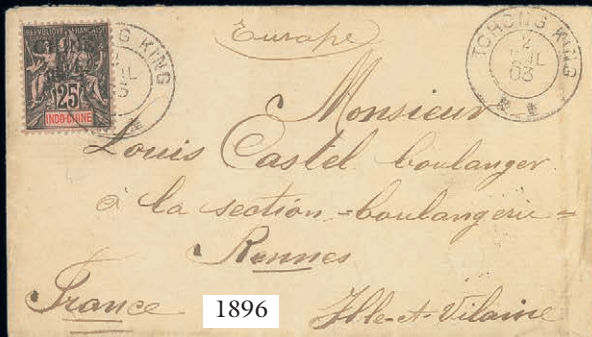 RÉPUBLIQUE FRANÇAISE
CHINE
25
INDO-CHINE
TCHONG KING
2
03
Europe
Monsieur
Louis Castel boulanger
à la section =boulangerie=
Rennes
France
Ille-et-Vilaine
1896